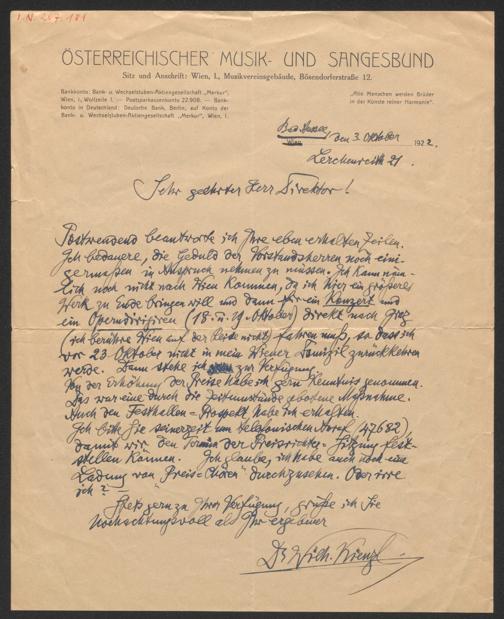 I.N. 207.181
ÖSTERREICHISCHER MUSIK- UND SANGESBUND
Sitz und Anschrift: Wien, I., Musikvereinsgebäude, Bösendorferstraße 12.
Bankkonto: Bank- u. Wechselstuben-Aktiengesellschaft „Merkur“,
Wien, I., Wollzeile 1. — Postsparkassenkonto 22.908. — Bank-
konto in Deutschland: Deutsche Bank, Berlin, auf Konto der
Bank- u. Wechselstuben-Aktiengesellschaft „Merkur“, Wien, I.
„Alle Menschen werden Brüder
in der Künste reiner Harmonie“.
Bad Aussee,
Wien, den 3. Oktober 1922.
Lerchenreith 21.
Sehr geehrter Herr Direktor!
Postwendend beantworte ich Ihre eben erhaltenen Zeilen.
Ich bedauere, die Geduld der Vorstandsherren noch eini-
germaßen in Anspruch nehmen zu müssen. Ich kann näm-
lich noch nicht nach Wien kommen, da ich hier ein größeres
Werk zu Ende bringen will und dann für ein Konzert und
ein Operndirigiren (18. u. 19. Oktober) direkt nach Graz
(ich berühre Wien auf der Reise nicht) fahren muß, so dass ich
vor 23. Oktober nicht in mein Wiener Domizil zurückkehren
werde. Dann stehe ich zur Verfügung.
Von der Erhöhung der Preise habe ich gern Kenntnis genommen.
Das war eine durch die Zeitumstände gebotene Maßnahme.
Auch den Festhallen-Prospekt habe ich erhalten.
Ich bitte Sie seinerzeit um telefonischen Anruf (47682),
damit wir den Termin der Preisrichter-Sitzung fest-
stellen können. Ich glaube, ich habe auch noch eine
Ladung von „Preis-Chören“ durchzusehen. Oder irre
ich? —
Stets gern zu Ihrer Verfügung, grüße ich Sie
hochachtungsvoll als Ihr ergebener
Dr Wilh. Kienzl